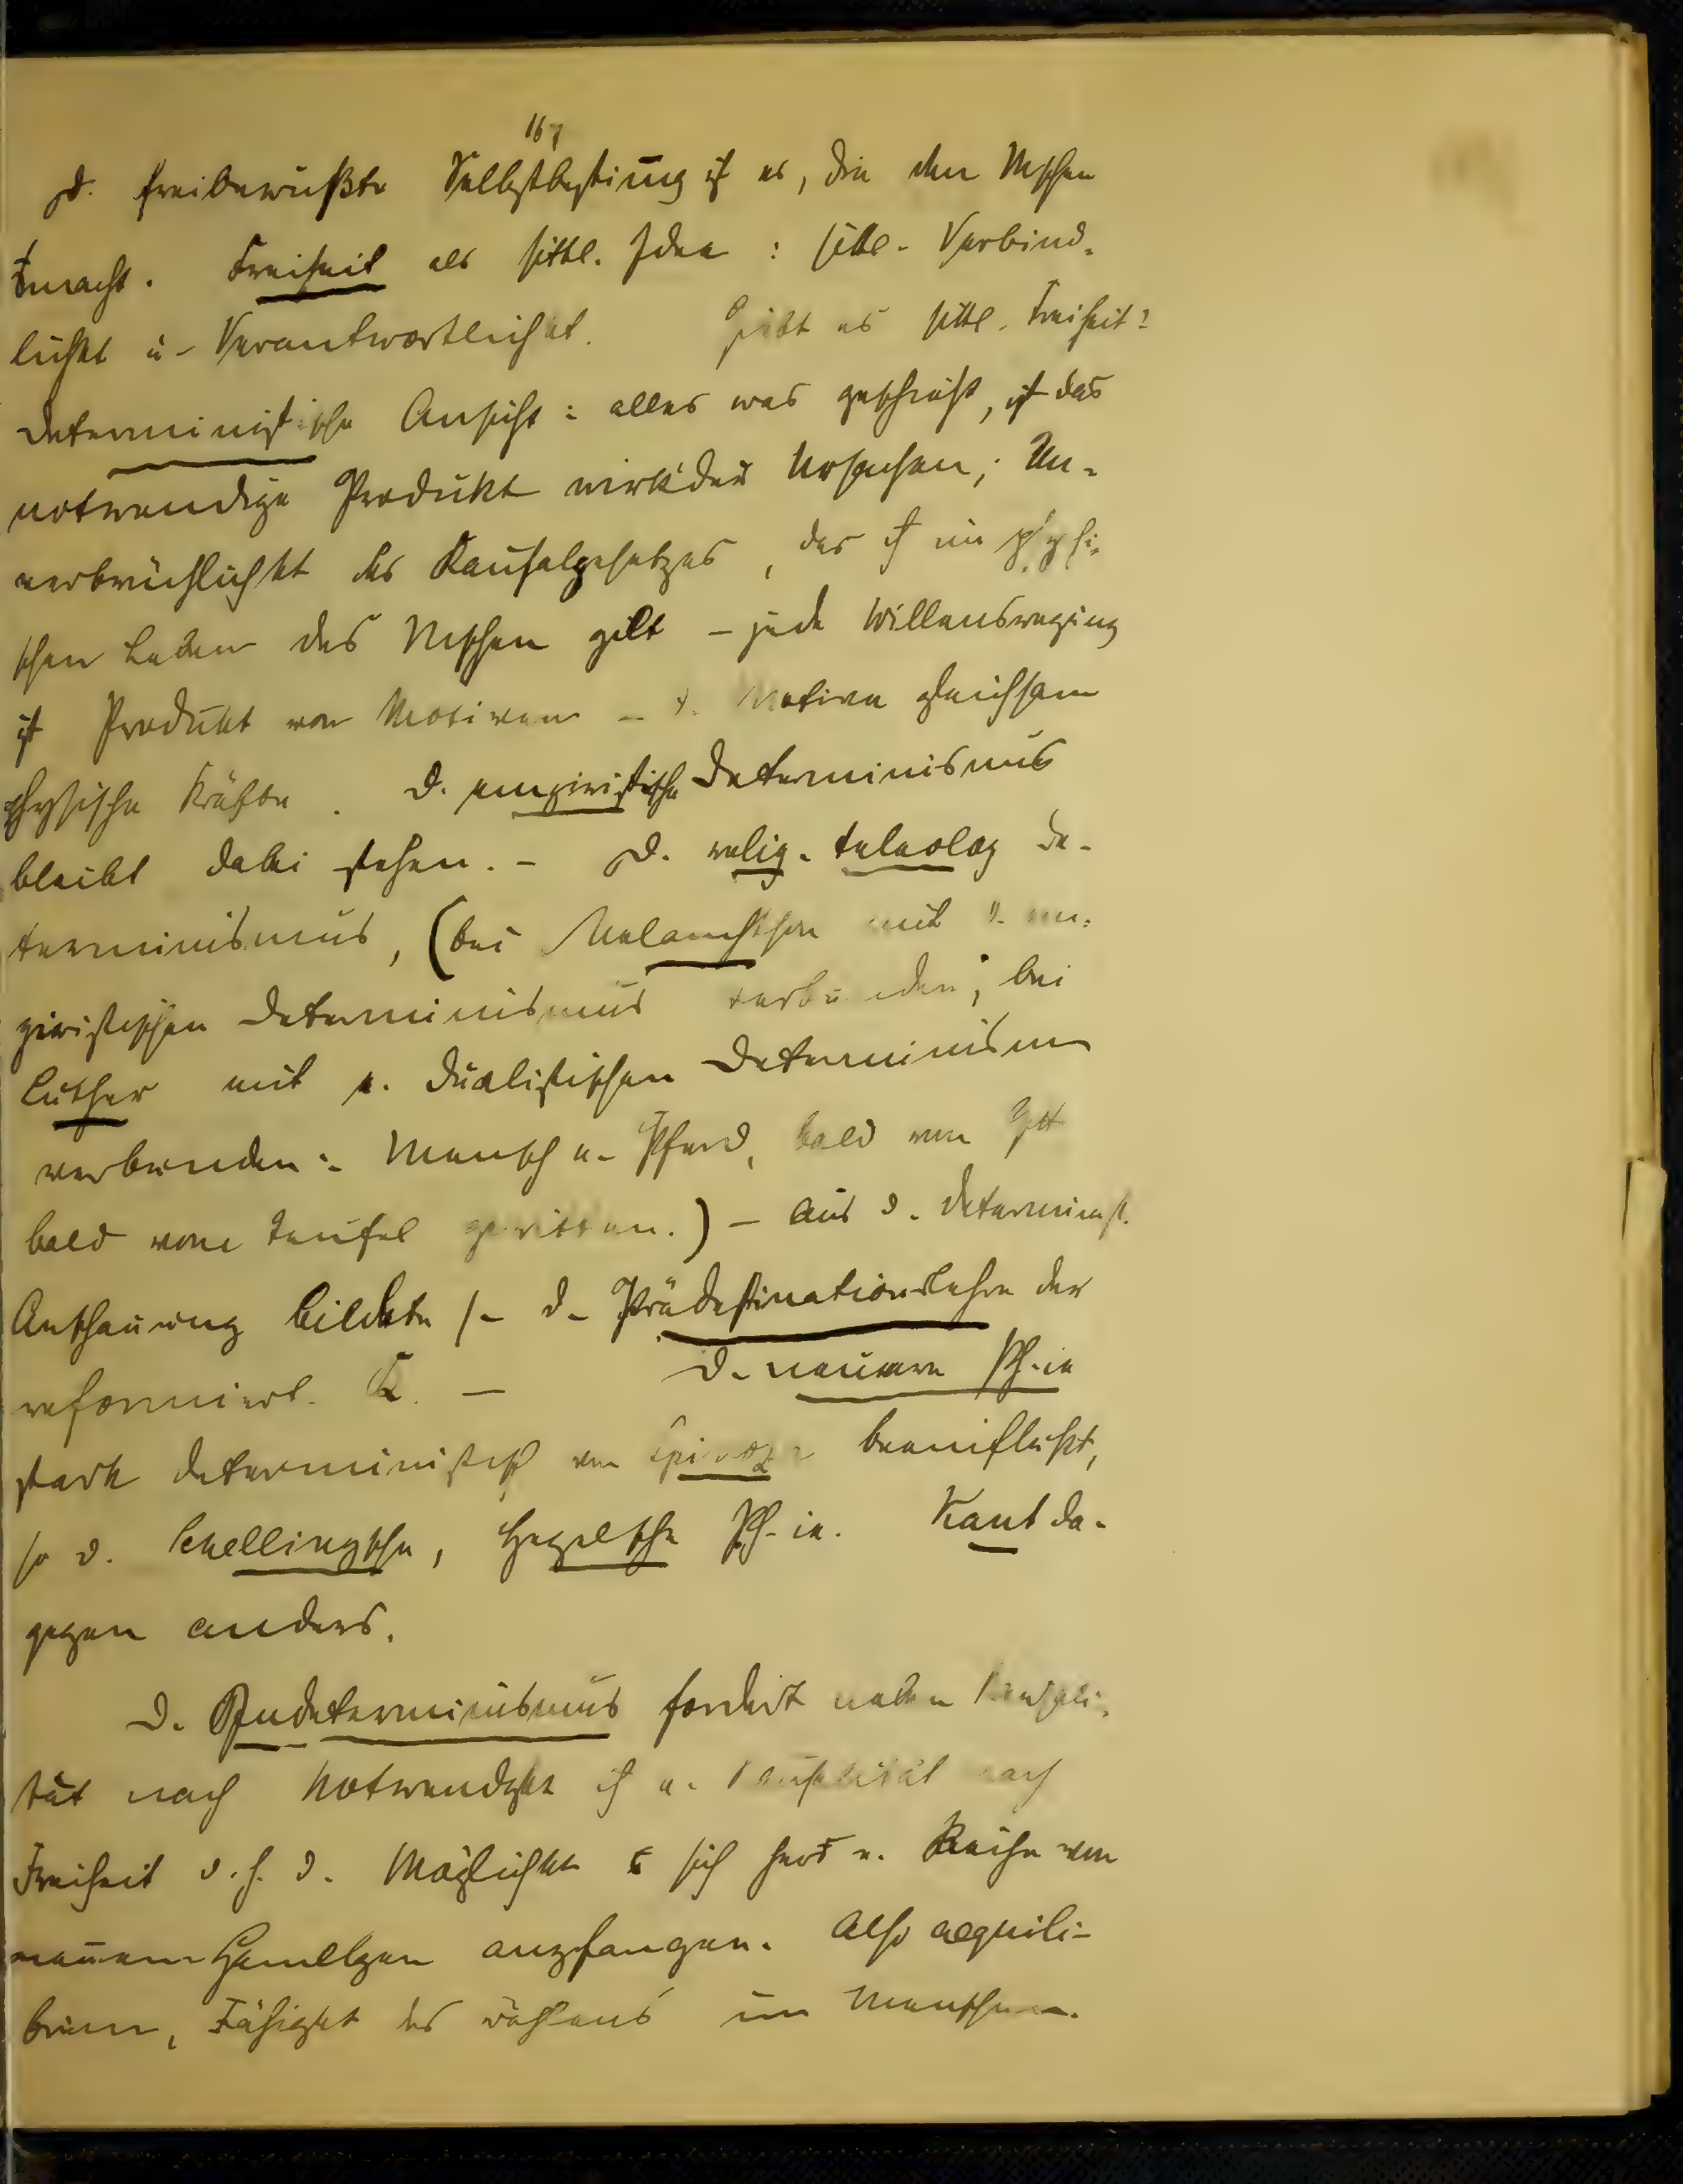 167
D. freibewußte Selbstbestim̅ung ist es, die den Mschen
macht. Freiheit als sittl. Idee : sittl. Verbind-
lichkt u- Verantwortlichkt. Gibt es sittl. Freiheit?
Deterministische Ansicht : alles was geschieht, ist das
notwendige Produkt wirkder Ursachen; Un-
verbrüchlichkt des Kausalgesetzes, das im
schen Leben des Mschen gilt – jede Willensregung
ist Produkt von Motiven – d. Motive gleichsam
physische Kräfte. D. empiristische Determinismus
bleibt dabei stehen. – D. relig. teleolog De-
terminismus, (bei Melanchthon mit d. em-
piristischen Determinismus verbunden; bei
Luther mit e. dualistischen Determinism
verbunden: Mensch e. Pferd, bald von Gott
bald vom Teufel geritten.) – Aus d. determinist.
Anschauung bildete s- d- Prädestinationslehre der
reformiert. K. – D. neuere Ph-ie
stark deterministisch von Spinoza beeinflußt,
so d. Schellingsche, Hegelsche Ph-ie. Kant da-
gegen anders.
D. Indeterminismus fordert neben Kausali-
tät nach Notwendgkt e. Kausalität nach
Freiheit d.h. d. Möglichkt sich e. Reihe von
neuem anzfangen. Also aequili-
brium, Fähigkt des Wählens im Menschen.